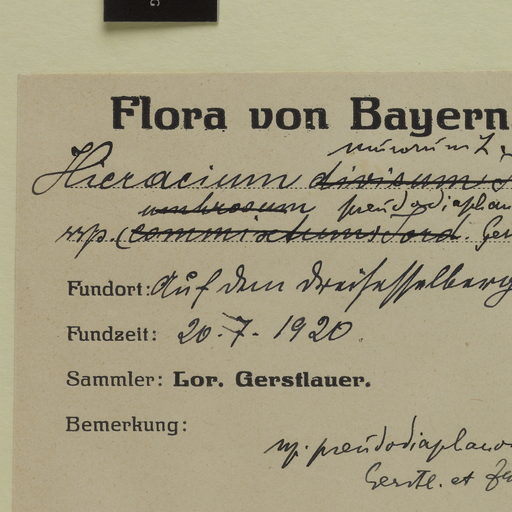 Flora von Bayern
murorum L
Hieracium divisum
umbrosum pseudodiaplan
ssp. (commixtum Jord. Ger
Fundort: Auf dem Dreisesselberg
Fundzeit: 20.7. 1920.
Sammler: Lor. Gerstlauer.
Bemerkung:
ssp. pseudodiaplano
Gerstl. et Za